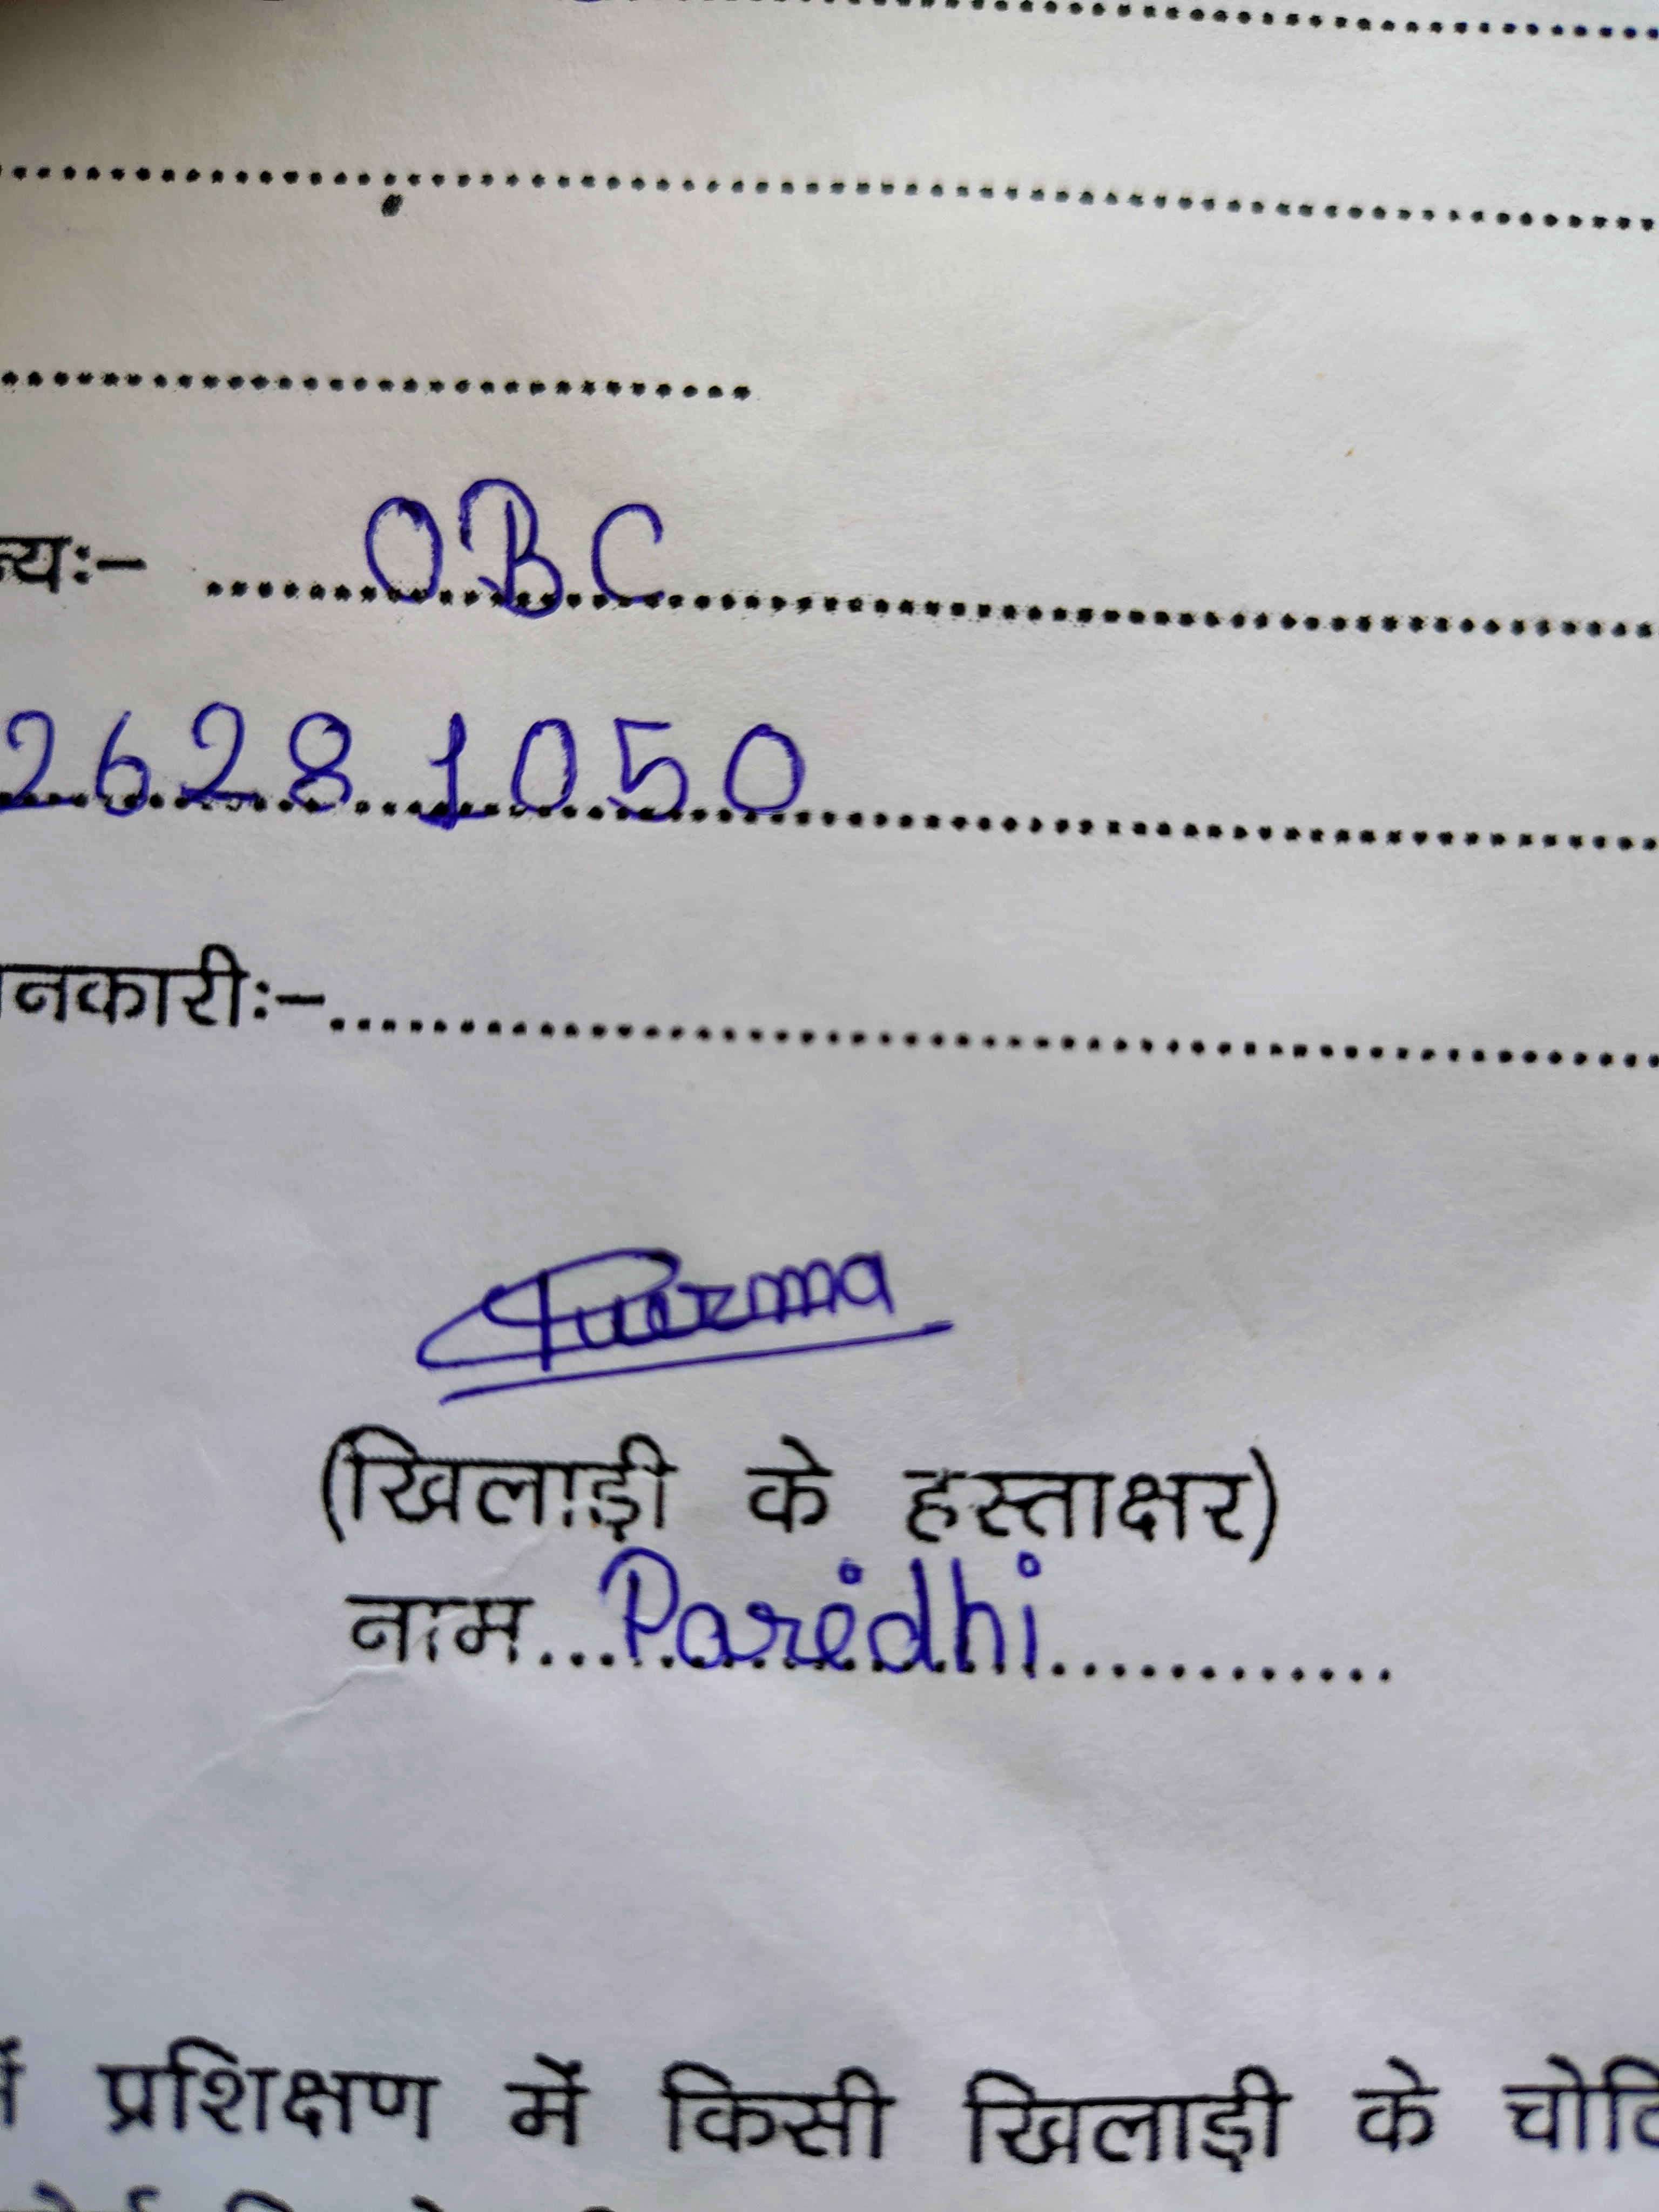 न्यः– OBC
2628 1050
ानकारीः–
(खिलाड़ी के हस्ताक्षर)
नाम Paridhi
प्रशिक्षण में किसी खिलाड़ी के